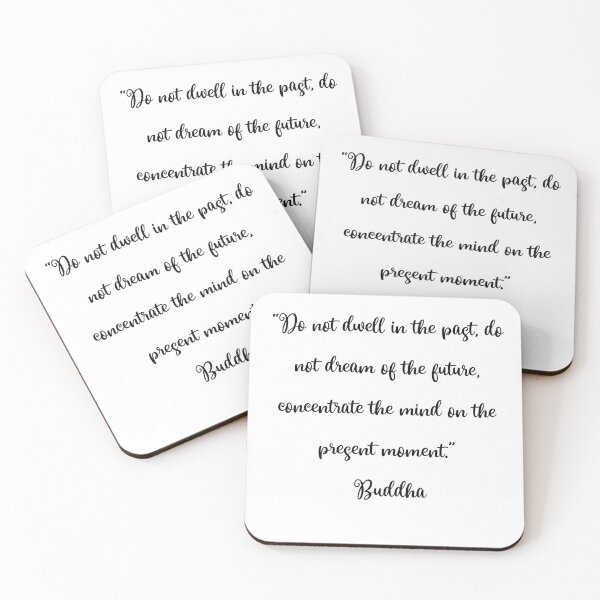 “Do not dwell in the past, do
not dream of the future,
concentrate the mind on t
ent.”
“Do not dwell in the past, do
not dream of the future,
concentrate the mind on the
present moment.”
“Do not dwell in the past, do
not dream of the future,
concentrate the mind on the
present moment
Buddha
“Do not dwell in the past, do
not dream of the future,
concentrate the mind on the
present moment.”
Buddha